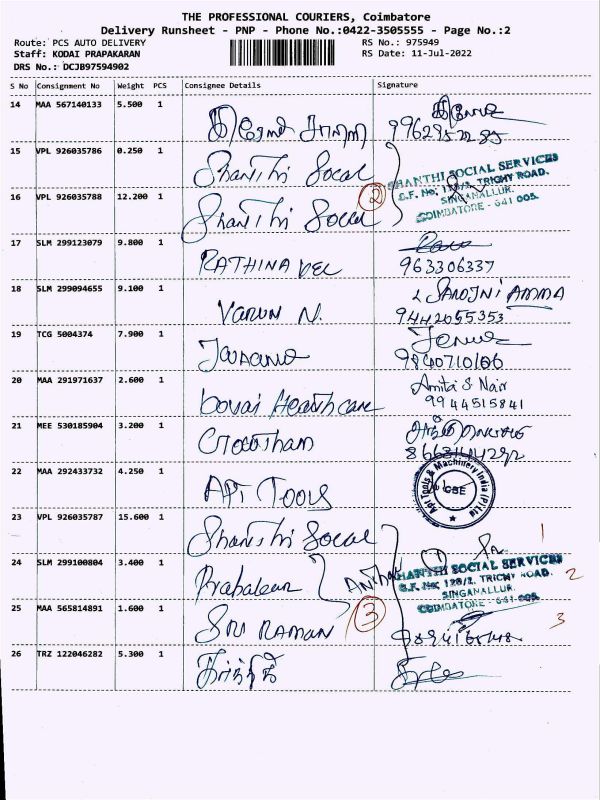 THE PROFESSIONAL COURIERS, Coimbatore
Delivery Runsheet - PNP - Phone No.:0422-3505555 - Page No.:2
Route: PCS AUTO DELIVERY RS No.: 975949
Staff: KODAI PRAPAKARAN RS Date: 11-Jul-2022
DRS No.: DCJB97594902
S No Consignment No Weight PCS Consignee Details Signature
14 MAA 567140133 5.500 1
15 VPL 926035786 0.250 1 Shanthi Social
SHANTHI SOCIAL SERVICES
S.F. No; 128/2, TRICHY ROAD.
16 VPL 926035788 12.200 1 Shanthi Social 2
SINGANALLUR.
COIMBATORE - 641 005.
17 SLM 299123079 9.800 1 RATHINAVEL 963306337
18 SLM 299094655 9.100 1 VARUN N. SAROJNI AMMA
9442055353
19 TCG 5004374 7.900 1
9840710106
20 MAA 291971637 2.600 1 Healthcare Amita S Nair
9944515841
21 MEE 530185904 3.200 1
22 MAA 292433732 4.250 1 API TOOLS Apt Tools & Machinery India (P) Ltd
CBE
23 VPL 926035787 15.600 1 Shanthi Social
1
24 SLM 299100804 3.400 1 SHANTHI SOCIAL SERVICES
S.F. No; 128/2, TRICHY ROAD. 2
SINGANALLUR.
COIMBATORE - 641 005.
25 MAA 565814891 1.600 1 SRI RAMAN 3 3
26 TRZ 122046282 5.300 1